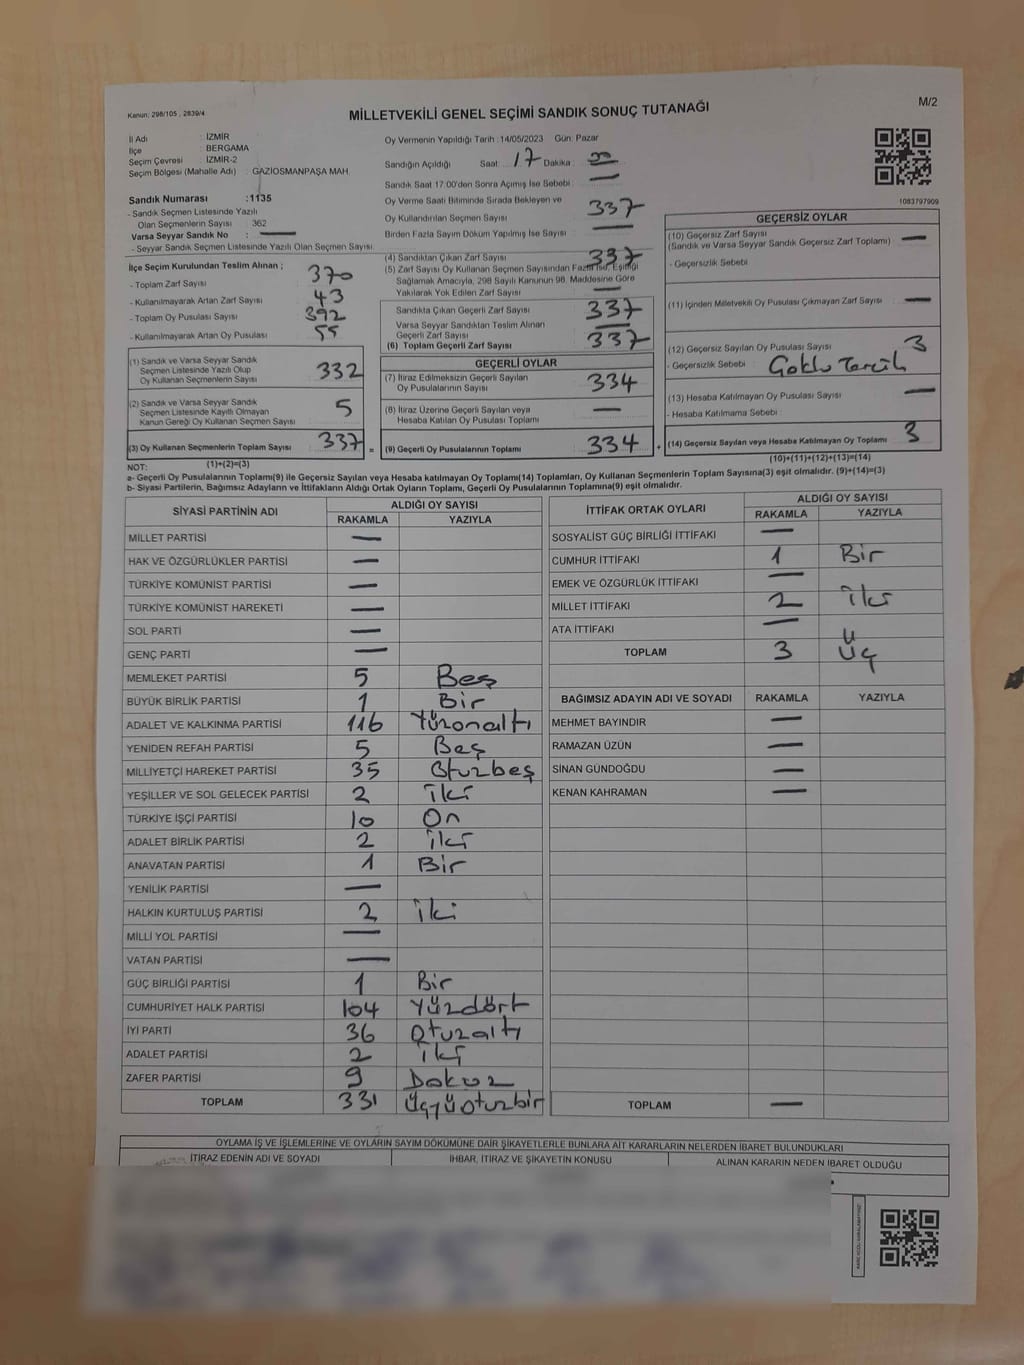 Kanun: 298/105 , 2839/4
MİLLETVEKİLİ GENEL SEÇİMİ SANDIK SONUÇ TUTANAĞI
M/2
İl Adı : İZMİR
İlçe : BERGAMA
Seçim Çevresi : İZMİR-2
Seçim Bölgesi (Mahalle Adı) : GAZİOSMANPAŞA MAH.
Sandık Numarası :1135
- Sandık Seçmen Listesinde Yazılı
Olan Seçmenlerin Sayısı : 362
Varsa Seyyar Sandık No : —
- Seyyar Sandık Seçmen Listesinde Yazılı Olan Seçmen Sayısı:
Oy Vermenin Yapıldığı Tarih :14/05/2023 Gün: Pazar
Sandığın Açıldığı Saat: 17 Dakika : 00
Sandık Saat 17:00'den Sonra Açımış İse Sebebi : —
Oy Verme Saati Bitiminde Sırada Bekleyen ve
Oy Kullandırılan Seçmen Sayısı : 337
Birden Fazla Sayım Döküm Yapılmış İse Sayısı : —
1083797909
İlçe Seçim Kurulundan Teslim Alınan ;
- Toplam Zarf Sayısı : 370
- Kullanılmayarak Artan Zarf Sayısı : 43
- Toplam Oy Pusulası Sayısı : 392
- Kullanılmayarak Artan Oy Pusulası : 55
(1) Sandık ve Varsa Seyyar Sandık
Seçmen Listesinde Yazılı Olup
Oy Kullanan Seçmenlerin Sayısı 332
(2) Sandık ve Varsa Seyyar Sandık
Seçmen Listesinde Kayıtlı Olmayan
Kanun Gereği Oy Kullanan Seçmen Sayısı 5
(3) Oy Kullanan Seçmenlerin Toplam Sayısı 337
(1)+(2)=(3)
(4) Sandıktan Çıkan Zarf Sayısı 337
(5) Zarf Sayısı Oy Kullanan Seçmen Sayısından Fazla İse, Eşitliği
Sağlamak Amacıyla, 298 Sayılı Kanunun 98. Maddesine Göre
Yakılarak Yok Edilen Zarf Sayısı —
Sandıkta Çıkan Geçerli Zarf Sayısı 337
Varsa Seyyar Sandıktan Teslim Alınan
Geçerli Zarf Sayısı —
(6) Toplam Geçerli Zarf Sayısı 337
GEÇERLİ OYLAR
(7) İtiraz Edilmeksizin Geçerli Sayılan
Oy Pusulalarının Sayısı 334
(8) İtiraz Üzerine Geçerli Sayılan veya
Hesaba Katılan Oy Pusulası Toplamı —
= (9) Geçerli Oy Pusulalarının Toplamı 334 +
GEÇERSİZ OYLAR
(10) Geçersiz Zarf Sayısı —
(Sandık ve Varsa Seyyar Sandık Geçersiz Zarf Toplamı)
- Geçersizlik Sebebi
(11) İçinden Milletvekili Oy Pusulası Çıkmayan Zarf Sayısı —
(12) Geçersiz Sayılan Oy Pusulası Sayısı 3
- Geçersizlik Sebebi : Çoklu Tercih
(13) Hesaba Katılmayan Oy Pusulası Sayısı —
- Hesaba Katılmama Sebebi :
(14) Geçersiz Sayılan veya Hesaba Katılmayan Oy Toplamı 3
(10)+(11)+(12)+(13)=(14)
NOT:
a- Geçerli Oy Pusulalarının Toplamı(9) ile Geçersiz Sayılan veya Hesaba katılmayan Oy Toplamı(14) Toplamları, Oy Kullanan Seçmenlerin Toplam Sayısına(3) eşit olmalıdır. (9)+(14)=(3)
b- Siyasi Partilerin, Bağımsız Adayların ve İttifakların Aldığı Ortak Oyların Toplamı, Geçerli Oy Pusulalarının Toplamına(9) eşit olmalıdır.
SİYASİ PARTİNİN ADI ALDIĞI OY SAYISI
RAKAMLA YAZIYLA
MİLLET PARTİSİ —
HAK VE ÖZGÜRLÜKLER PARTİSİ —
TÜRKİYE KOMÜNİST PARTİSİ —
TÜRKİYE KOMÜNİST HAREKETİ —
SOL PARTİ —
GENÇ PARTİ —
MEMLEKET PARTİSİ 5 Beş
BÜYÜK BİRLİK PARTİSİ 1 Bir
ADALET VE KALKINMA PARTİSİ 116 Yüzonaltı
YENİDEN REFAH PARTİSİ 5 Beş
MİLLİYETÇİ HAREKET PARTİSİ 35 Otuzbeş
YEŞİLLER VE SOL GELECEK PARTİSİ 2 İki
TÜRKİYE İŞÇİ PARTİSİ 10 On
ADALET BİRLİK PARTİSİ 2 İki
ANAVATAN PARTİSİ 1 Bir
YENİLİK PARTİSİ —
HALKIN KURTULUŞ PARTİSİ 2 İki
MİLLİ YOL PARTİSİ —
VATAN PARTİSİ —
GÜÇ BİRLİĞİ PARTİSİ 1 Bir
CUMHURİYET HALK PARTİSİ 104 Yüzdört
İYİ PARTİ 36 Otuzaltı
ADALET PARTİSİ 2 İki
ZAFER PARTİSİ 9 Dokuz
TOPLAM 331 Üçyüotuzbir
İTTİFAK ORTAK OYLARI ALDIĞI OY SAYISI
RAKAMLA YAZIYLA
SOSYALİST GÜÇ BİRLİĞİ İTTİFAKI —
CUMHUR İTTİFAKI 1 Bir
EMEK VE ÖZGÜRLÜK İTTİFAKI —
MİLLET İTTİFAKI 2 İki
ATA İTTİFAKI —
TOPLAM 3 Üç
BAĞIMSIZ ADAYIN ADI VE SOYADI RAKAMLA YAZIYLA
MEHMET BAYINDIR —
RAMAZAN ÜZÜN —
SİNAN GÜNDOĞDU —
KENAN KAHRAMAN —
TOPLAM —
OYLAMA İŞ VE İŞLEMLERİNE VE OYLARIN SAYIM DÖKÜMÜNE DAİR ŞİKAYETLERLE BUNLARA AİT KARARLARIN NELERDEN İBARET BULUNDUKLARI
İTİRAZ EDENİN ADI VE SOYADI İHBAR, İTİRAZ VE ŞİKAYETİN KONUSU ALINAN KARARIN NEDEN İBARET OLDUĞU